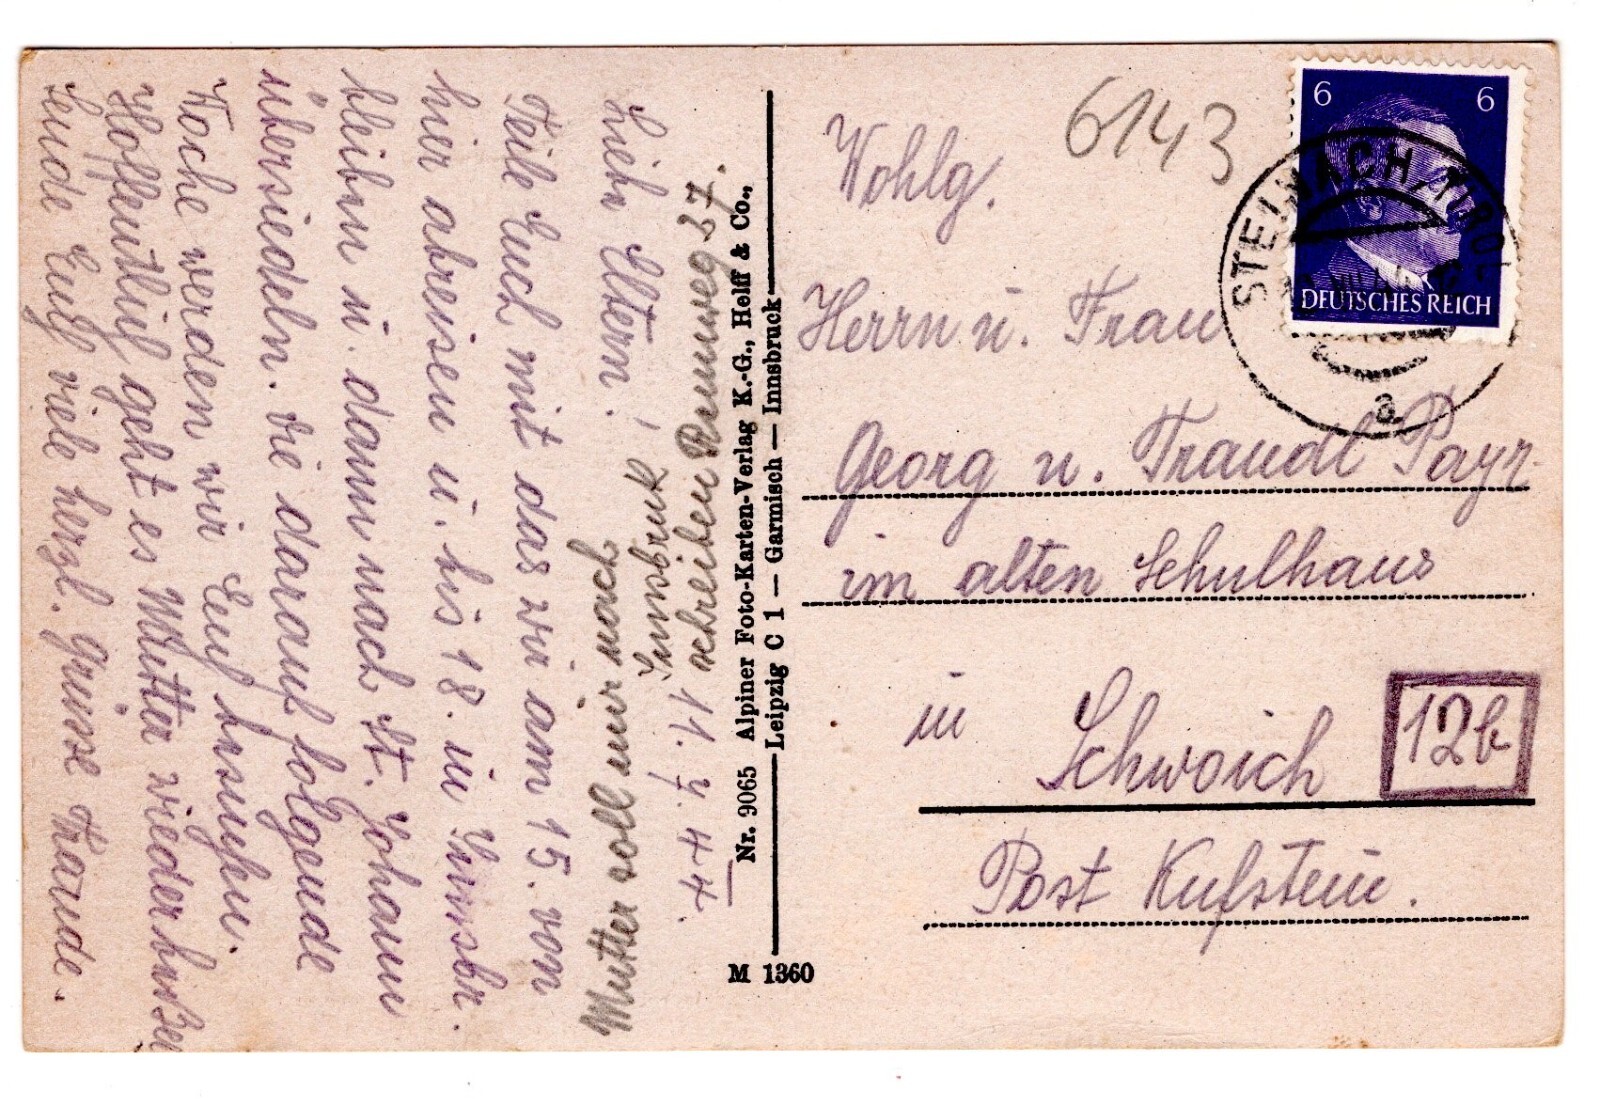 11. 7. 44.
Liebe Eltern!
Teile Euch mit das wir am 15. von
hier abreisen u. bis 18. in Innsbr.
bleiben u. dann nach St. Johann
übersiedeln. Die darauf folgende
Woche werden wir Euch besuchen.
Hoffentlich geht es Mutter wieder besser
Sende Euch viele herzl. Grüsse Traude.
Mutter soll mir noch
Innsbruk
schreiben Rennweg 37.
Nr. 9065 Alpiner Foto-Karten-Verlag K.-G., Helff & Co.,
Leipzig C 1 — Garmisch — Innsbruck
M 1360
6143
6 6
DEUTSCHES REICH
STEINACH TIROL
a
Wohlg.
Herrn u. Frau
Georg u. Traudl Payr
im alten Schulhaus
in Schwoich
12b
Post Kufstein.